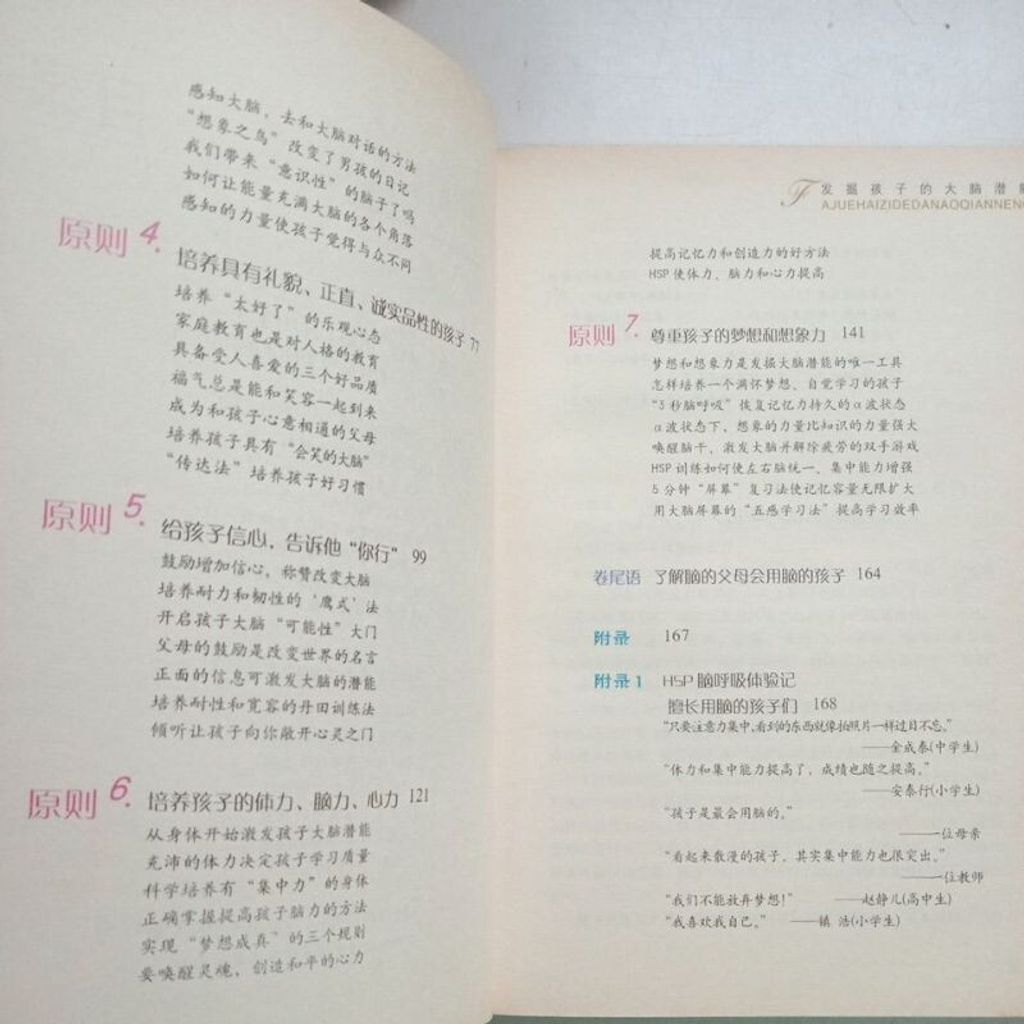 感知大脑，去和大脑对话的方法
“想象之鸟”改变了男孩的日记
我们带来“意识性”的脑子了吗
如何让能量充满大脑的各个角落
感知的力量使孩子觉得与众不同
原则 4. 培养具有礼貌、正直、诚实品性的孩子 77
培养“太好了”的乐观心态
家庭教育也是对人格的教育
具备受人喜爱的三个好品质
福气总是能和笑容一起到来
成为和孩子心意相通的父母
培养孩子具有“会笑的大脑”
“传达法”培养孩子好习惯
原则 5. 给孩子信心，告诉他“你行” 99
鼓励增加信心，称赞改变大脑
培养耐力和韧性的‘鹰式’法
开启孩子大脑“可能性”大门
父母的鼓励是改变世界的名言
正面的信息可激发大脑的潜能
培养耐性和宽容的丹田训练法
倾听让孩子向你敞开心灵之门
原则 6. 培养孩子的体力、脑力、心力 121
从身体开始激发孩子大脑潜能
充沛的体力决定孩子学习质量
科学培养有“集中力”的身体
正确掌握提高孩子脑力的方法
实现“梦想成真”的三个规则
要唤醒灵魂，创造和平的心力
发掘孩子的大脑潜
AJUEHAIZIDEDANAOQIANNENG
提高记忆力和创造力的好方法
HSP 使体力、脑力和心力提高
原则 7. 尊重孩子的梦想和想象力 141
梦想和想象力是发掘大脑潜能的唯一工具
怎样培养一个满怀梦想、自觉学习的孩子
“3 秒脑呼吸”恢复记忆力持久的 α 波状态
α 波状态下，想象的力量比知识的力量强大
唤醒脑干、激发大脑并解除疲劳的双手游戏
HSP 训练如何使左右脑统一、集中能力增强
5 分钟“屏幕”复习法使记忆容量无限扩大
用大脑屏幕的“五感学习法”提高学习效率
卷尾语 了解脑的父母会用脑的孩子 164
附录 167
附录 1 HSP 脑呼吸体验记
擅长用脑的孩子们 168
“只要注意力集中,看到的东西就像拍照片一样过目不忘。”
——金成泰(中学生)
“体力和集中能力提高了，成绩也随之提高。”
——安泰行(小学生)
“孩子是最会用脑的。”
——一位母亲
“看起来散漫的孩子，其实集中能力也很突出。”
——一位教师
“我们不能放弃梦想!” ——赵静儿(高中生)
“我喜欢我自己。” ——镇 浩(小学生)